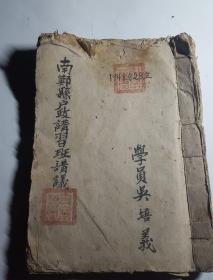 南鄭縣戶政講習班講議
學員吳培義